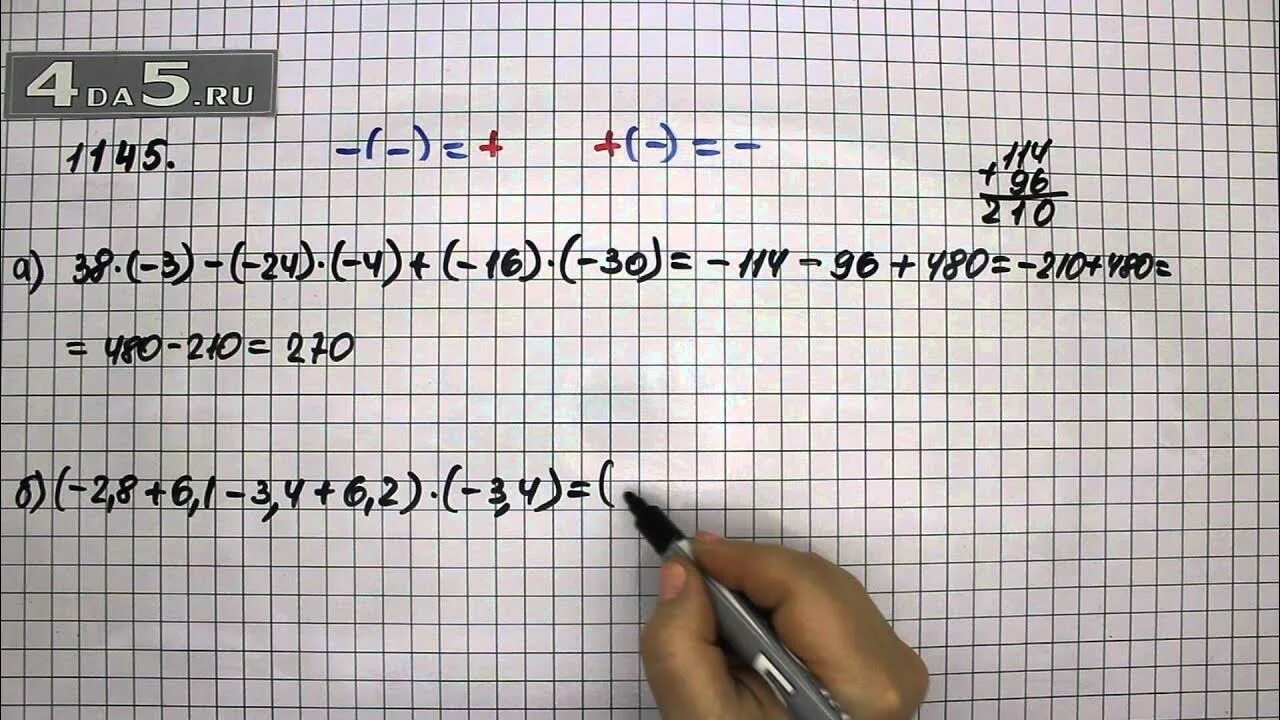 4DA5.RU
1145.
-(-)=+ +(-)=-
114
+ 96
210
а) 38·(-3)-(-24)·(-4)+(-16)·(-30)=-114-96+480=-210+480=
= 480-210= 270
б) (-2,8+6,1-3,4+6,2)·(-3,4)=(